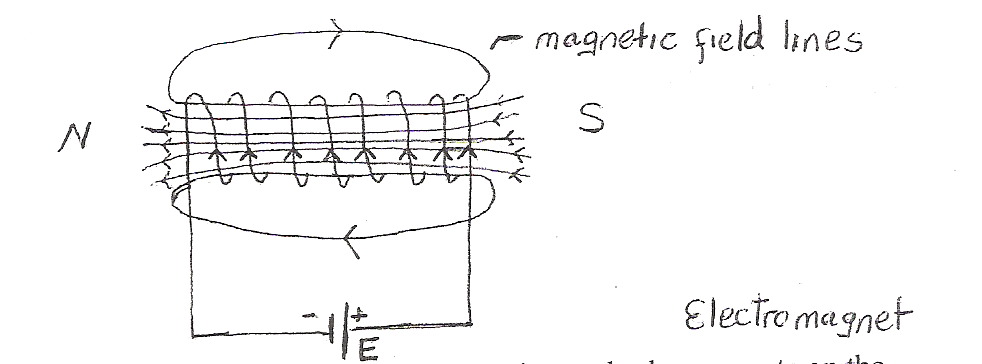 magnetic field lines
N
S
- +
E
Electromagnet